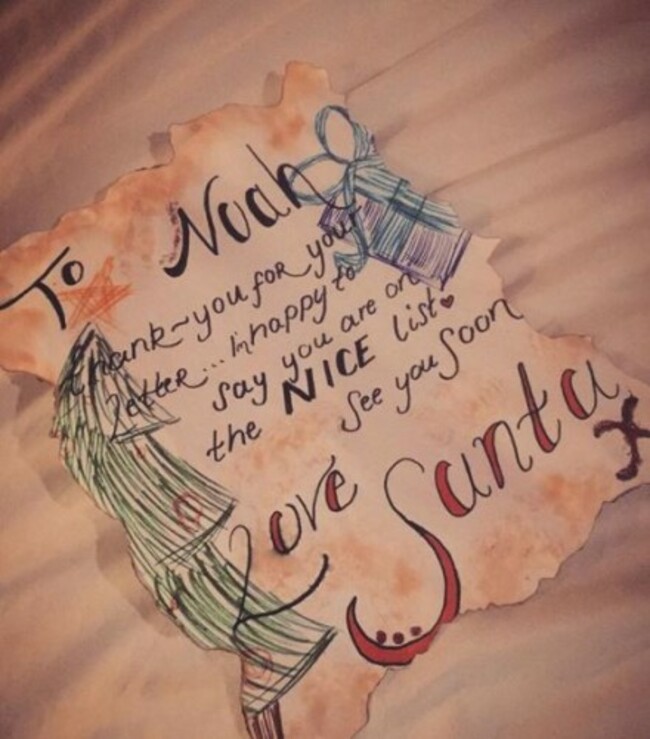 To Noah
Thank-you for your
letter... Im happy to
say you are on
the NICE list♥
See you Soon
Love Santa x